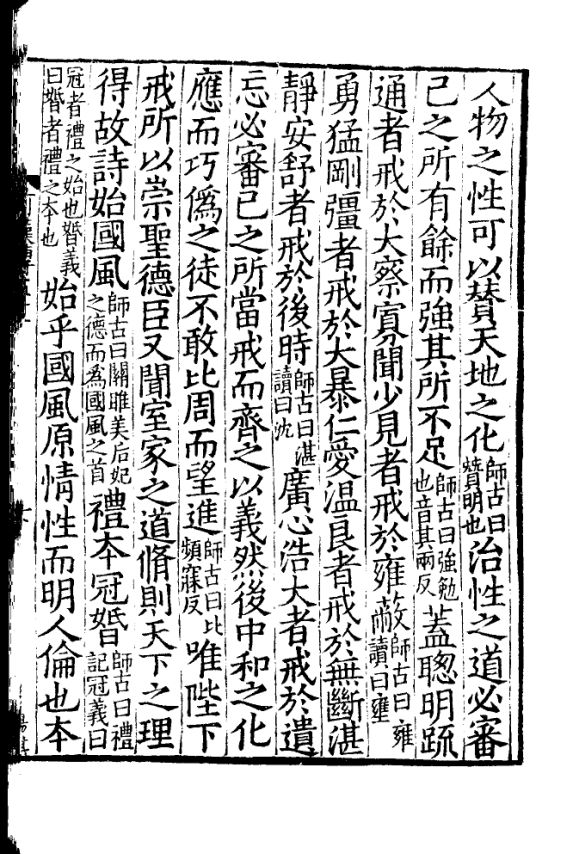 人物之性可以贊天地之化師古曰贊明也治性之道必審
己之所有餘而強其所不足師古曰強勉也音其兩反蓋聰明疏
通者戒於大察寡聞少見者戒於雍蔽師古曰雍讀曰壅
勇猛剛彊者戒於大暴仁愛温良者戒於無斷湛
靜安舒者戒於後時師古曰湛讀曰沈廣心浩大者戒於遺
忘必審己之所當戒而齊之以義然後中和之化
應而巧僞之徒不敢比周而望進師古曰比頻寐反唯陛下
戒所以崇聖德臣又聞室家之道脩則天下之理
得故詩始國風師古曰關雎美后妃之德而爲國風之首禮本冠婚師古曰禮記冠義曰
冠者禮之始也昬義曰昬者禮之本也始乎國風原情性而明人倫也本